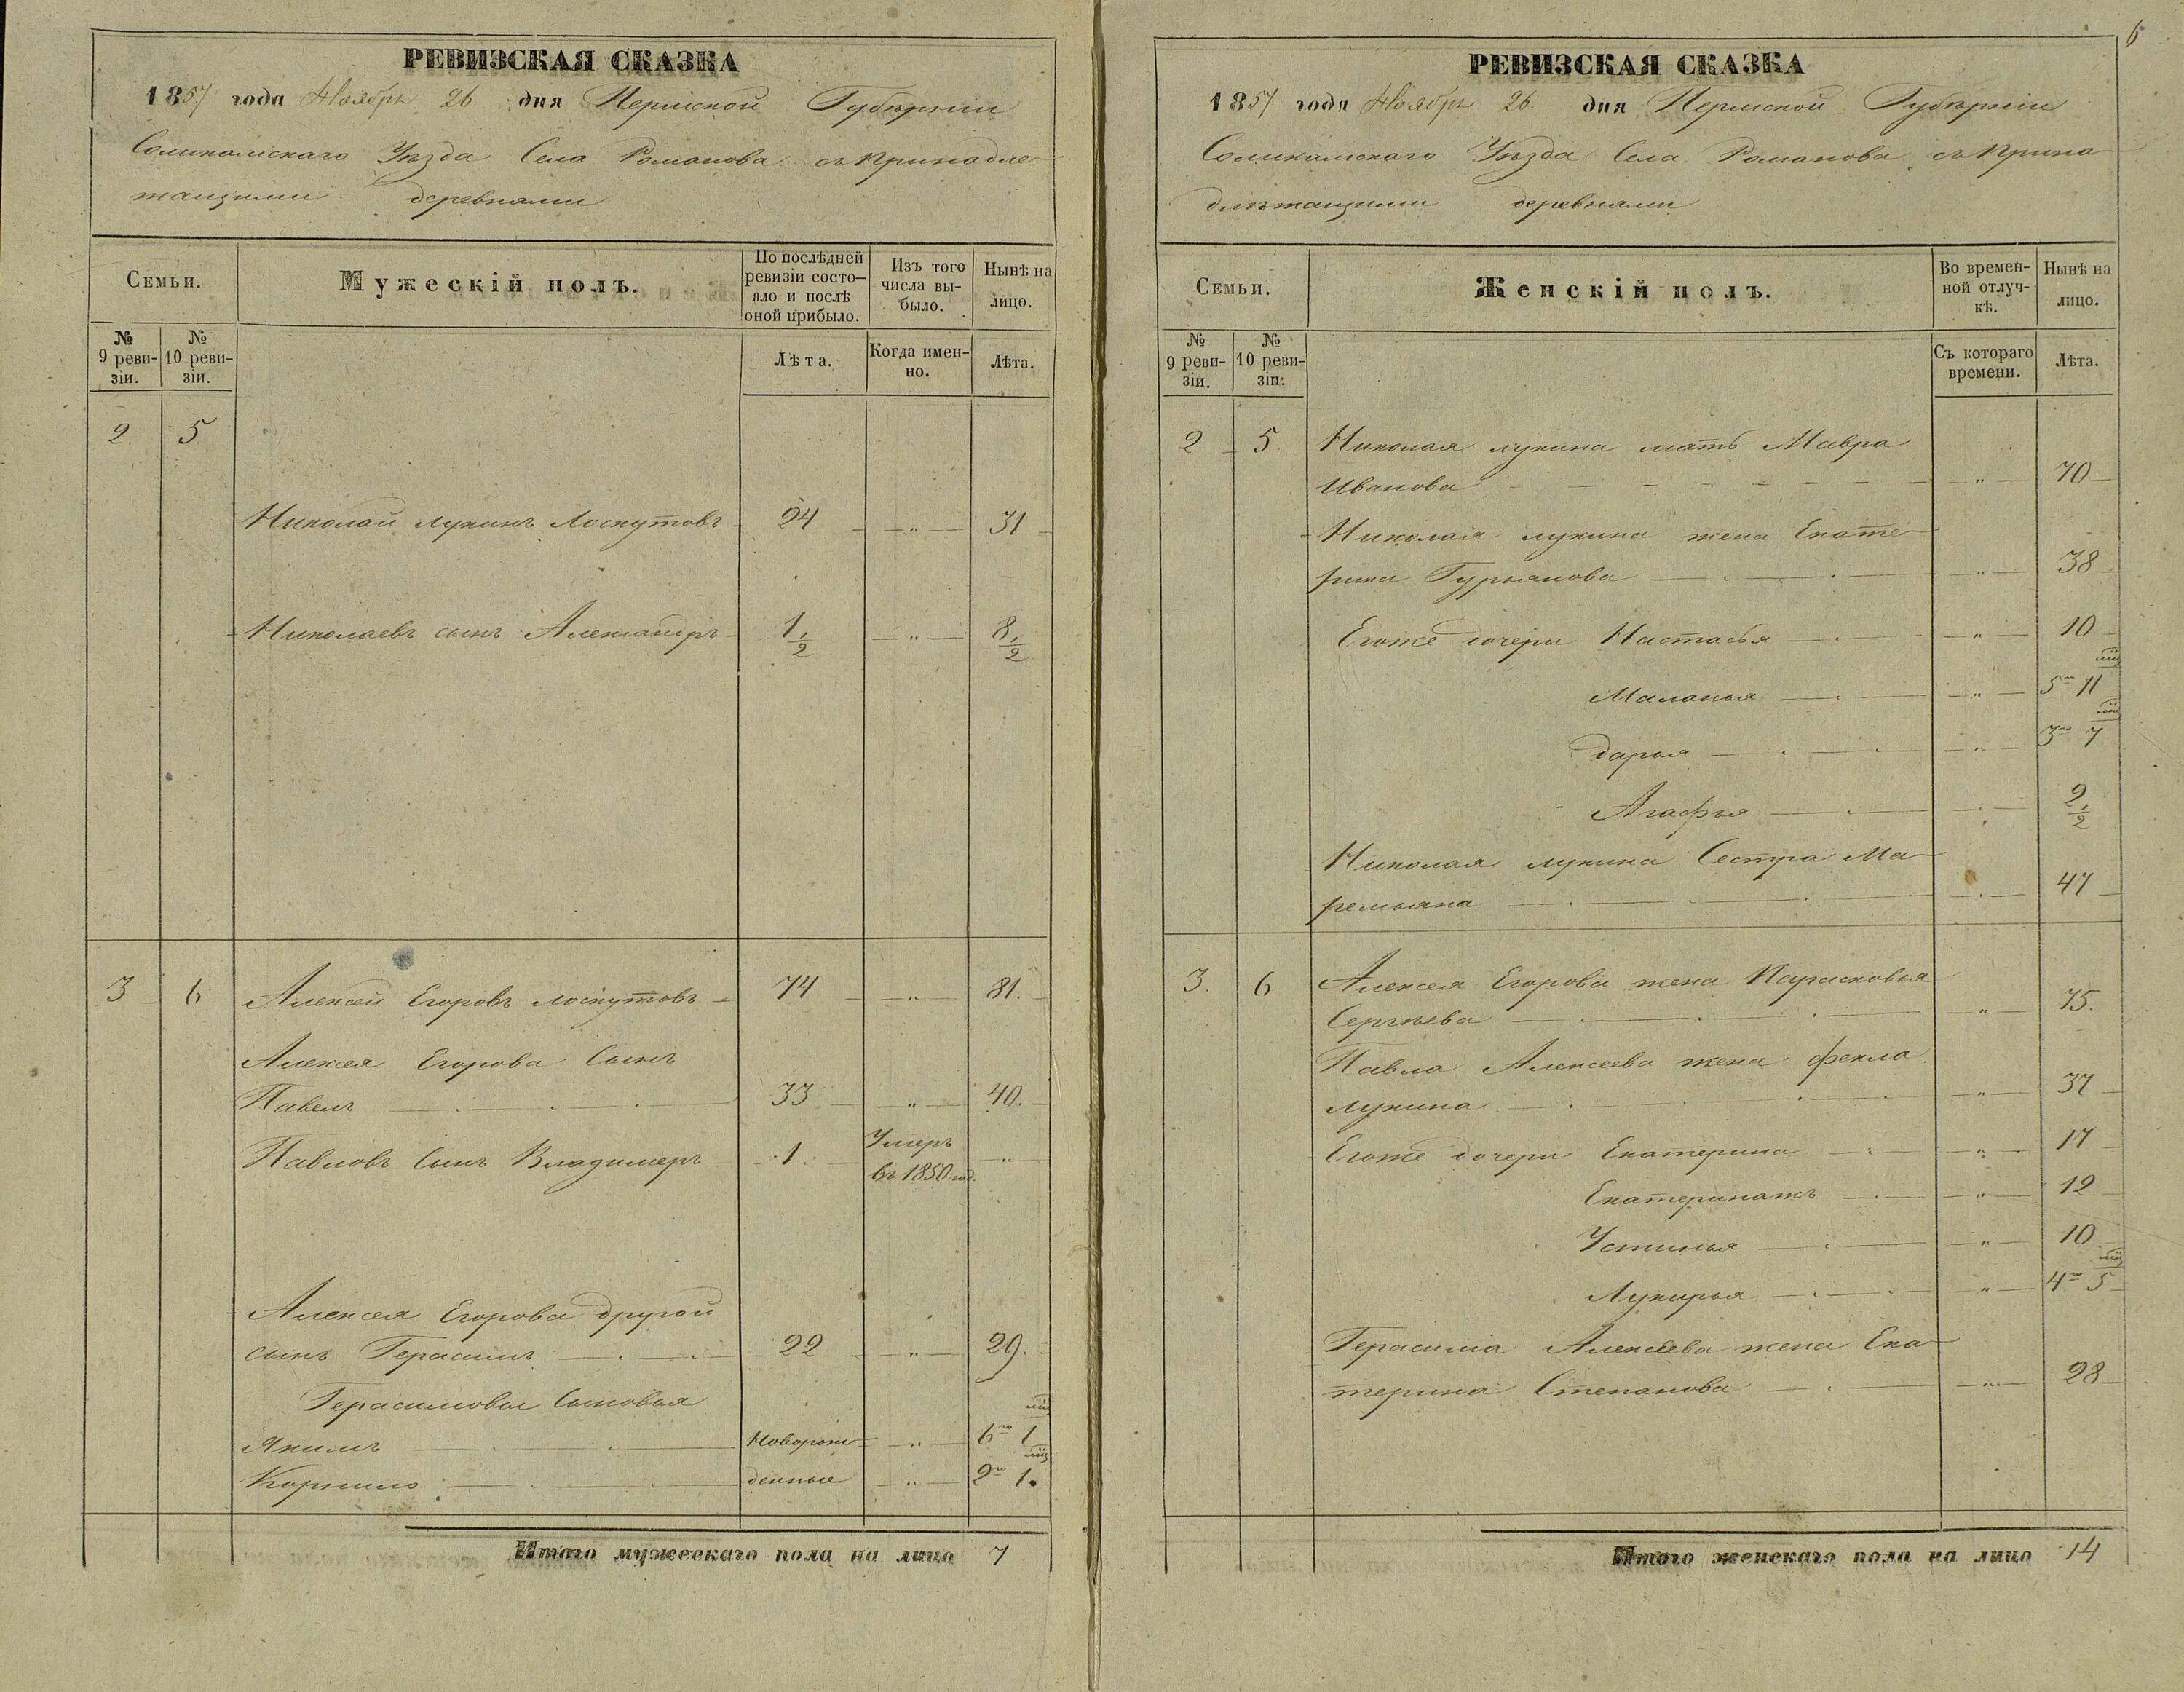 РЕВИЗСКАЯ СКАЗКА
1857 года Ноября 26 дня Пермской Губернии
Соликамскаго Уѣзда Села Романова съ Принадле
жащими деревнями
Семьи.
Мужескій полъ.
По послѣдней ревизіи состо-
яло и послѣ оной прибыло.
Изъ того числа вы-
было.
Нынѣ на лицо.
№ 9 реви-
зіи.
№ 10 реви-
зіи.
Лѣта.
Когда имен-
но.
Лѣта.
2. 5
Николай лукинъ Лоскутовъ 24 „ 31
Николаевъ сынъ Александръ 1 1/2 „ 8 1/2
3 6 Алексей Егоровъ лоскутовъ 74 „ 81.
Алексея Егорова Сынъ
Павелъ 33 „ 40.
Павловъ Сынъ Владимеръ 1. Умеръ „
въ 1850 год.
Алексея Егорова другой
сынъ Герасимъ 22 „ 29.
Герасимовы Сыновья
Якимъ Новорож „ 6 1 мц
Корнило денные „ 2 1. мц
Итого мужескаго пола на лицо 7
6
РЕВИЗСКАЯ СКАЗКА
1857 года Ноября 26. дня Пермской Губернии
Соликамскаго Уѣзда Села Романова съ Прина
длѣжащими деревнями
Семьи.
Женскій полъ.
Во времен-
ной отлуч-
кѣ.
Нынѣ на лицо.
№ 9 реви-
зіи.
№ 10 реви-
зіи.
Съ котораго времени.
Лѣта.
2 5 Николая лукина мать Мавра
Иванова „ 70
Николая лукина жена Екате
рина Гурьянова „ 38
Егоже дочери Настасья „ 10
Маланья „ 5 11 мц
дарья „ 3 7 мц
Агафья „ 2 1/2
Николая лукина Сестра Ма
ремьяна „ 47
3. 6 Алексея Егорова жена Парасковья
Сергѣева „ 75.
Павла Алексеева жена фекла
лукина „ 37
Егоже дочери Екатерина „ 17
Екатеринажъ „ 12
Устинья „ 10
Лукирья „ 4 5 мц
Герасима Алексеева жена Ека
терина Степанова „ 28
Итого женскаго пола на лицо 14